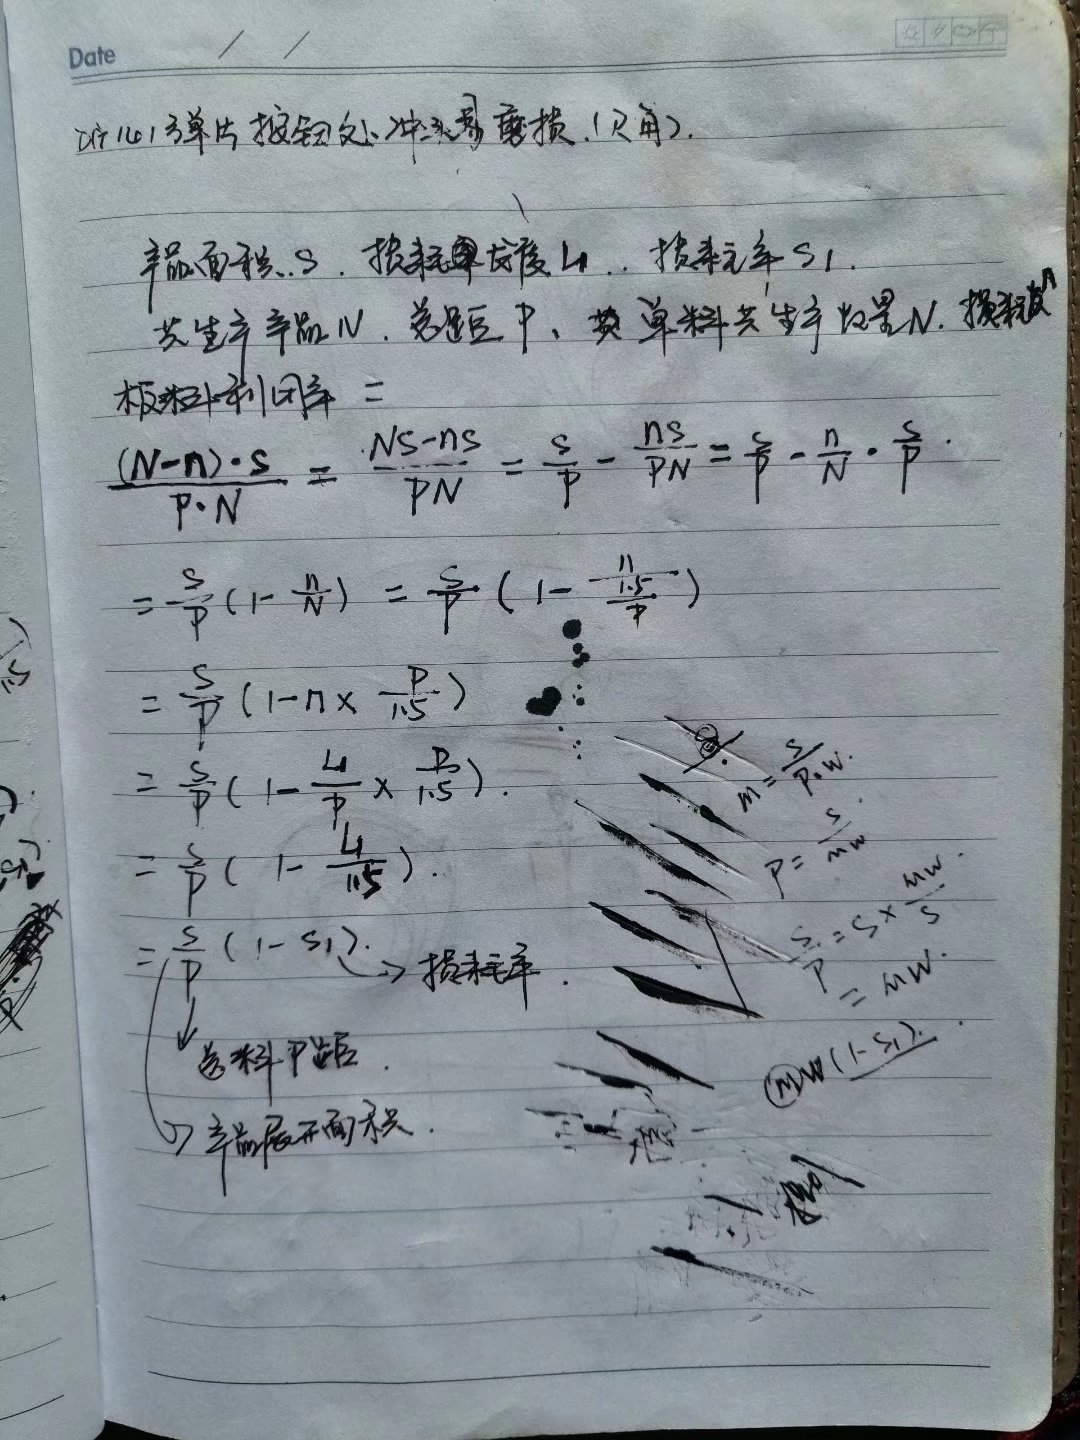 Date / /
弹片按钮处冲头易磨损.(尺角).
产品面积S. 损耗长度L1.. 损耗率S1.
共生产产品N. 总步距P、单料共生产数量N. 损耗数n
板料利用率 =
(N-n)·S / P·N = NS-nS / PN = S/P - nS/PN = S/P - n/N · S/P.
= S/P (1- n/N) = S/P (1- n/(1.5/P))
= S/P (1-n× P/1.5)
= S/P (1- L1/P × P/1.5).
= S/P (1- L1/1.5).
= S/P (1-S1). → 损耗率.
送料步距.
→ 产品展开面积.
M= S/P·W.
P= S/MW
S/P = S× MW/S.
= MW.
MW(1-S1).